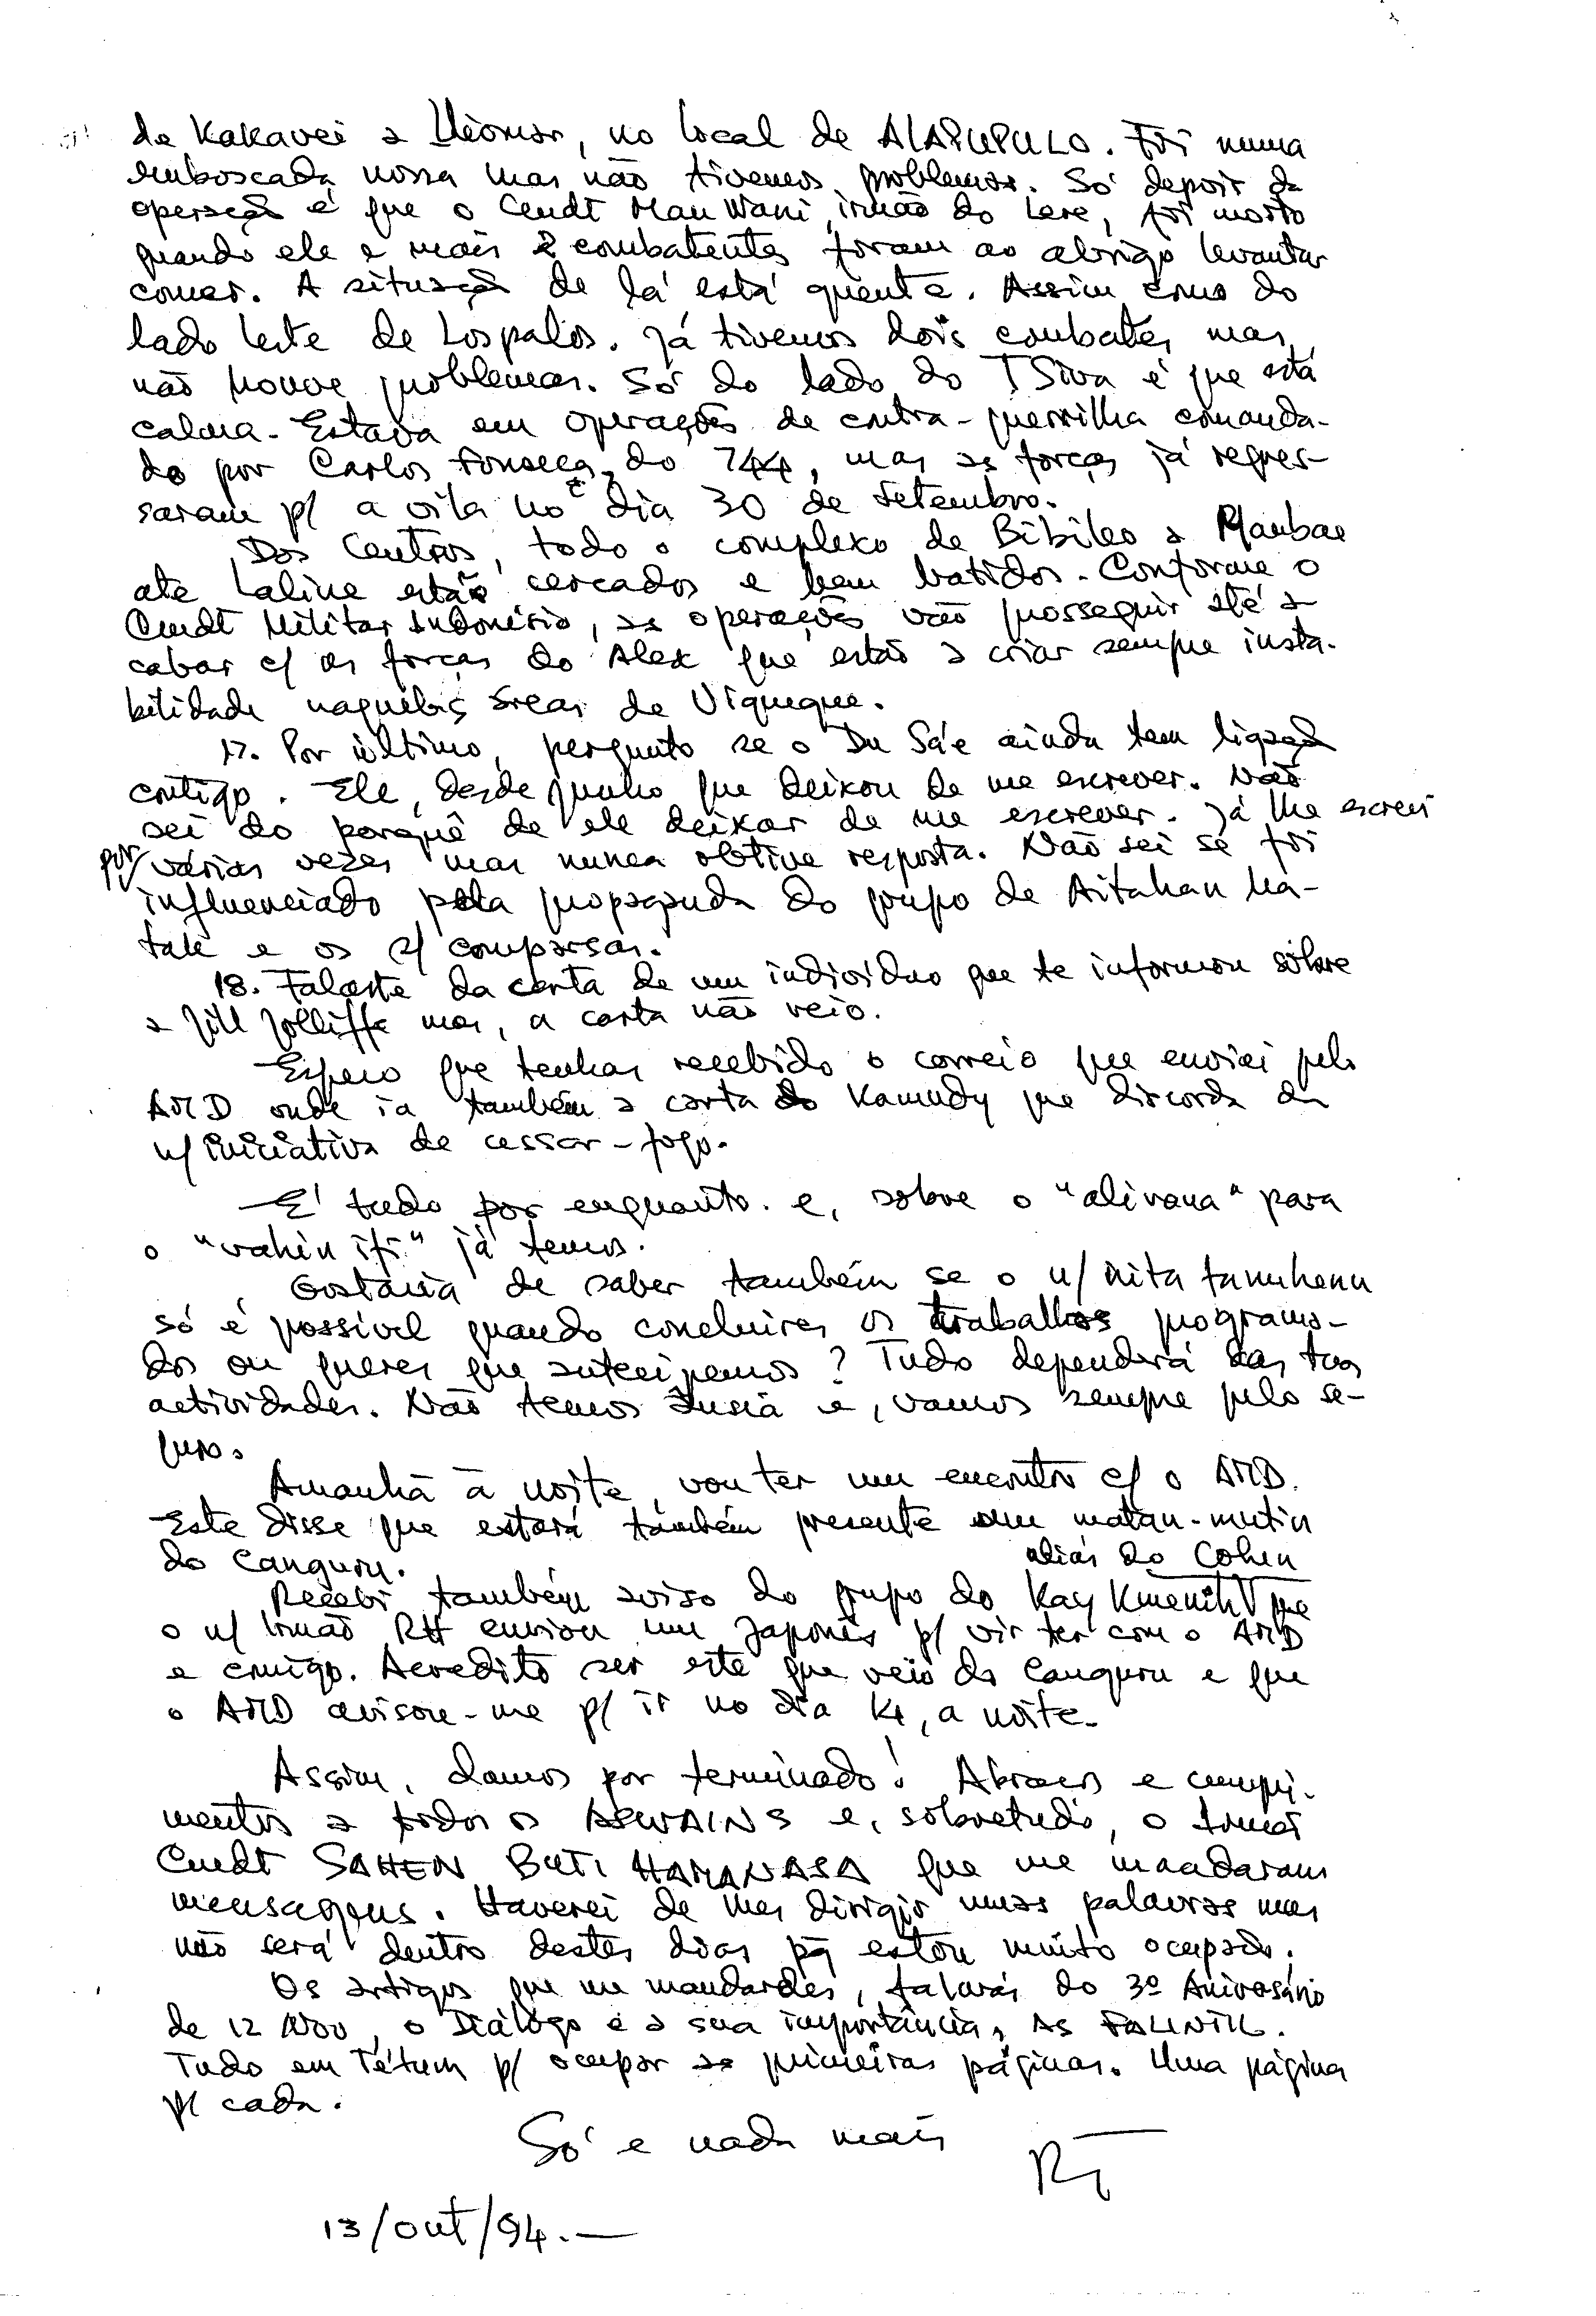 de Kakavei a Uiomar, no local de ALAPUPULO. Foi numa
emboscada nossa mas não tivemos problemas. Só depois da
operação é que o Cmdt Mau Wani, irmão do Lere, foi morto
quando ele e mais 2 combatentes foram ao abrigo levantar
comer. A situação de lá está quente. Assim como do
lado leste de Lospalos. Já tivemos dois combates mas,
não houve problemas. Só do lado do T Siva é que está
calma. Estava em operações de contra-guerrilha comanda-
do por Carlos Fonseca, do 744, mas as forças já regres-
saram p/ a vila no dia 30 de Setembro.
Dos Centros, todo o complexo de Bibileo a
até Laline estão cercados e bem batidos. Conforme o
Cmdt Militar Indonésio, as operações vão prosseguir até a-
cabar c/ as forças do Alex que estão a criar sempre insta-
bilidade naquelas áreas de Viqueque.
17. Por último, pergunto se o Du Sá'e ainda tem ligação
contigo. Ele, desde Junho que deixou de me escrever. Não
sei do porquê de ele deixar de me escrever. Já lhe escrevi
por várias vezes mas nunca obtive resposta. Não sei se foi
influenciado pela propaganda do grupo de Aitahan Ma-
tak e os s/ comparsas.
18. Falaste da carta de um indivíduo que te informou sôbre
a Jill Jolliffe mas, a carta não veio.
Espero que tenhas recebido o correio que enviei pelo
AMD onde ia também a carta do Kamudy que discorda da
n/ iniciativa de cessar-fogo.
É tudo por enquanto. e, sobre o "alivana" para
o "vahin iti" já temos.
Gostaria de saber também se o n/ hita tanuhenu
só é possível quando concluires os trabalhos programa-
dos ou queres que antecipemos? Tudo dependerá das tuas
actividades. Não temos ânsia e, vamos sempre pelo se-
guro.
Amanhã à noite, vou ter um encontro c/ o AMD.
Este disse que estará também presente um matan-mutin
do Canguru.
aliás do Cohen
Recebi também aviso do grupo do Kay que
o n/ Irmão RH enviou um Japonês p/ vir ter com o AMD
e comigo. Acredito ser este que veio do Canguru e que
o AMD avisou-me p/ ir no dia 14, a noite.
Assim, damos por terminado! Abraços e cumpri-
mentos a todos os ASWAINS e, sobretudo, o Irmão
Cmdt SAHEN BUTI HAMANASA que me mandaram
mensagens. Haverei de lhes dirigir umas palavras mas
não será dentro destes dias pq estou muito ocupado.
Os artigos que me mandardes, falarás do 3º Aniversário
de 12 Nov, o Diálogo e a sua importância, As FALINTIL.
Tudo em Tétum p/ ocupar as primeiras páginas. Uma página
p/ cada.
Só e nada mais
13/out/94.—